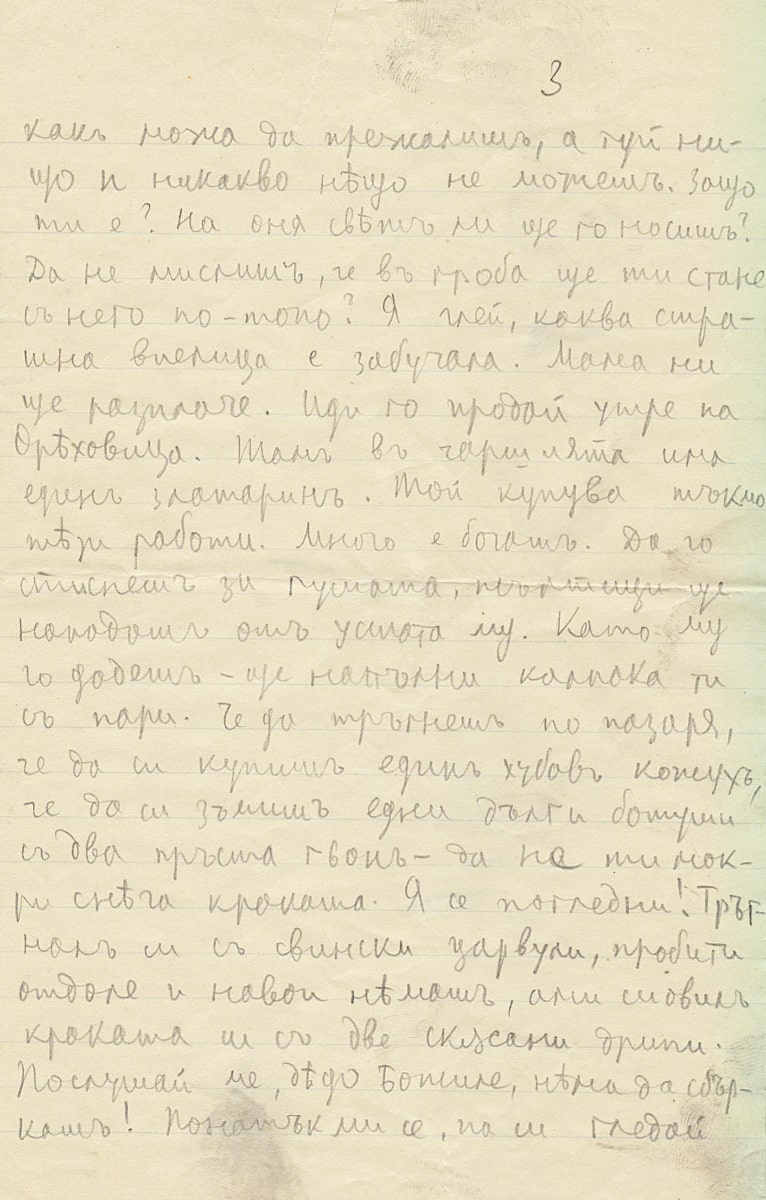 3
какъ можа да прежалишъ, а туй ни-
що и никакво нѣщо не можешъ. Защо
ти е? На оня свѣтъ ли ще го носишъ?
Да не мислишъ, че въ гроба ще ти стане
съ него по-топо? Я глей, каква стра-
шна виелица е забучала. Мама ни
ще разплаче. Иди го продай утре на
Орѣховица. Тамъ въ чаршията има
единъ златаринъ. Той купува тъкмо
тѣзи работи. Много е богатъ. Да го
стиснешъ за гушата, жълтици ще
нападатъ отъ устата му. Като му
го дадешъ – ще напълни калпака ти
съ пари. Че да тръгнешъ по пазаря,
че да си купишъ единъ хубавъ кожухъ,
че да си зъмишъ едни дълги ботуши
съ два пръста гьонъ – да не ти мок-
ри снѣга краката. Я се погледни! Тръг-
налъ си съ свински царвули, пробити
отдоле и навои нѣмашъ, ами си овилъ
краката си съ две скъсани дрипи.
Послушай ме, дѣдо Божиле, нѣма да сбър-
кашъ! Понатъкми се, па си гледай